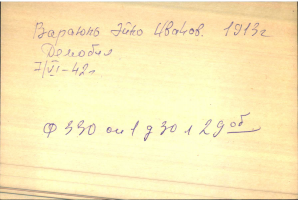 Вараюнь Эйно Иванов. 1913г
Демобил
7/VI-42г
Ф 330 оп 1 д 30 л 29 об